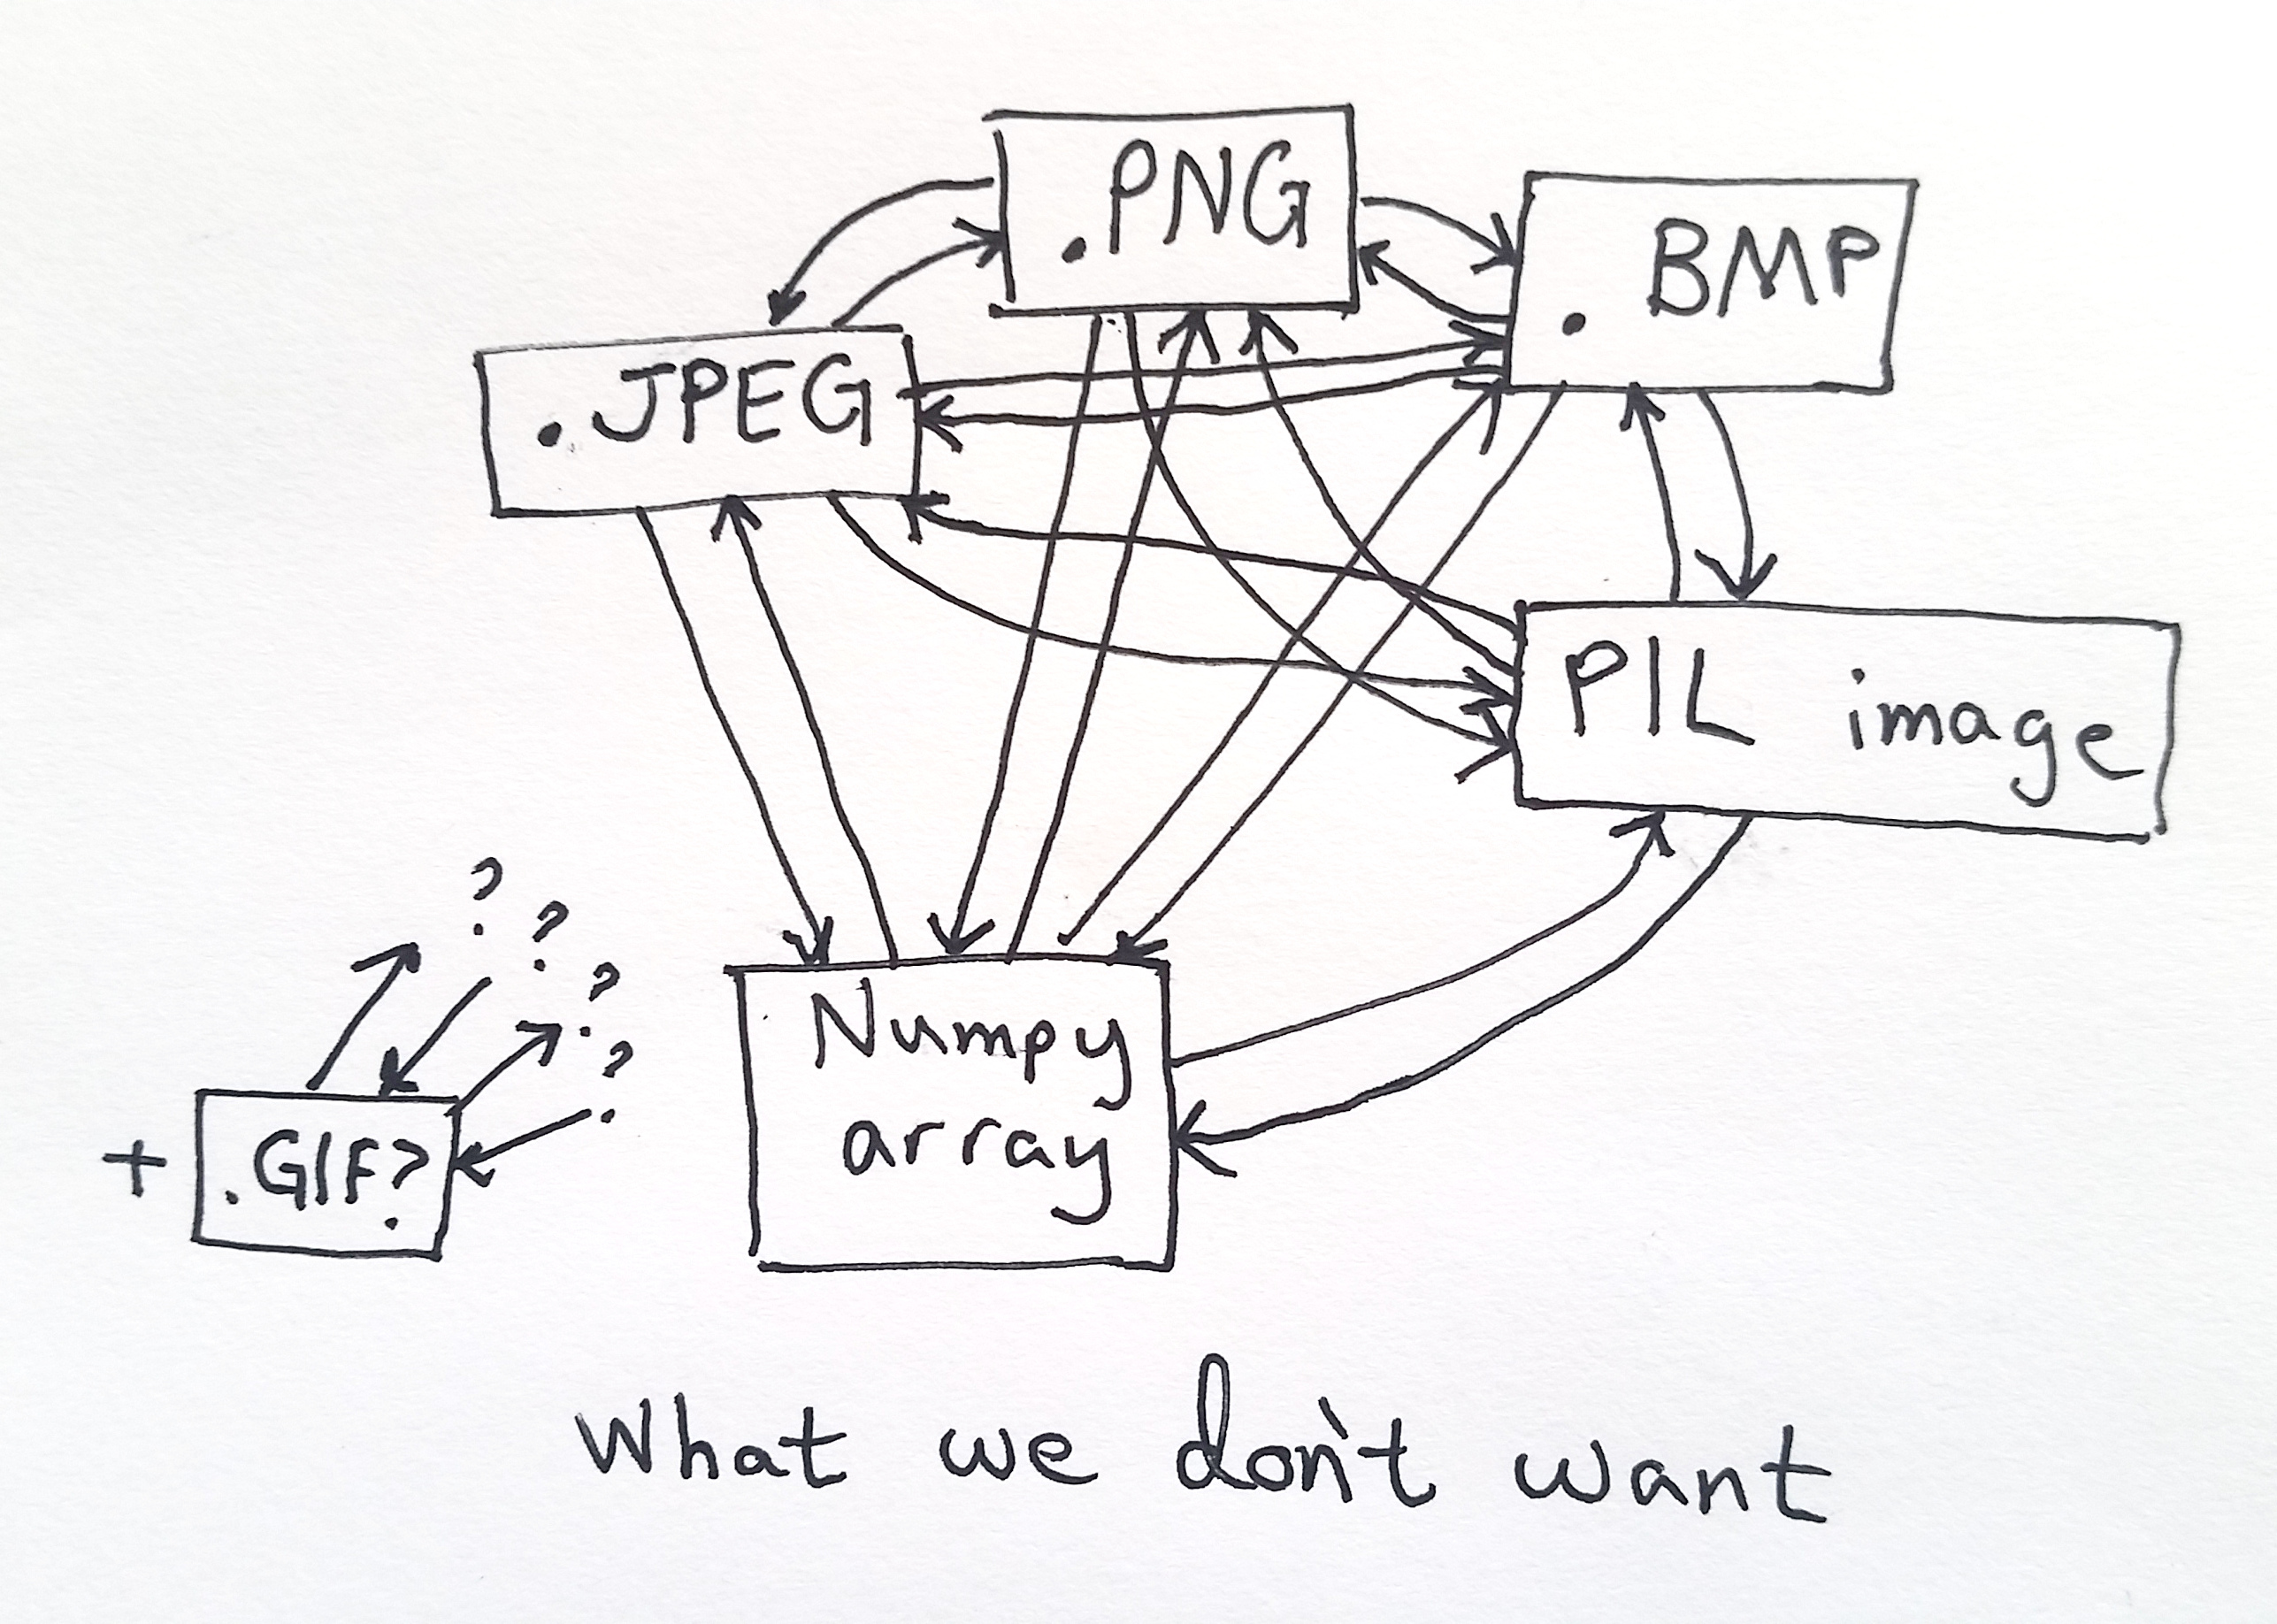 .PNG
. BMP
.JPEG
PIL image
?
?
?
?
Numpy
array
+ .GIF?
What we don't want